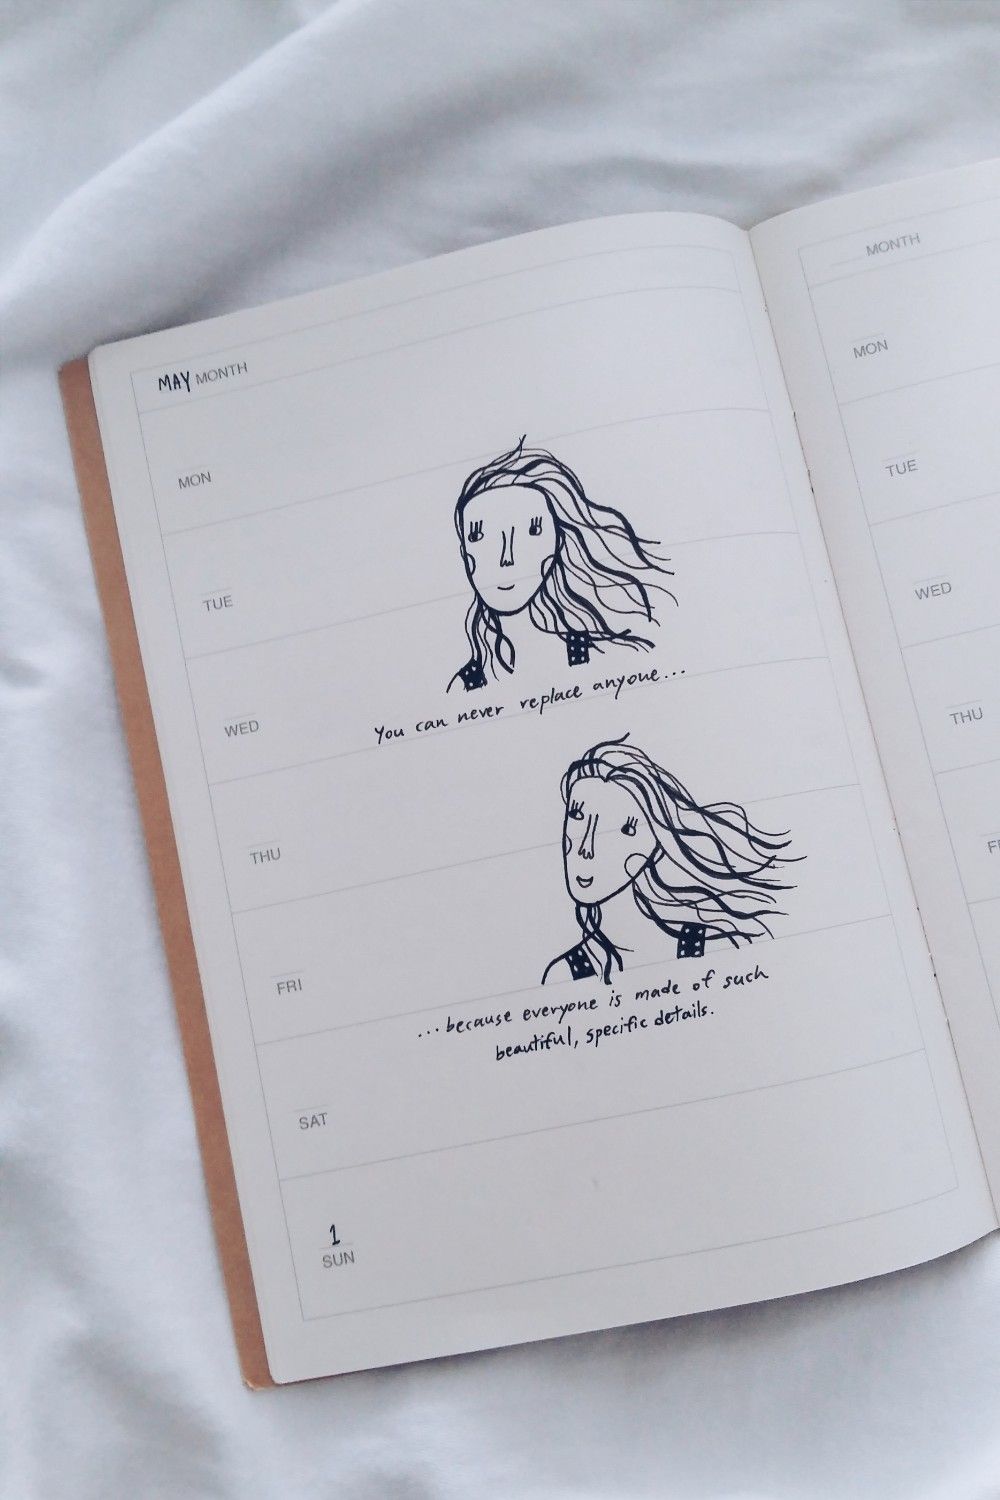 MAY MONTH
MON
TUE
You can never replace anyone...
WED
THU
FRI
...because everyone is made of such
beautiful, specific details.
SAT
1
SUN
MONTH
MON
TUE
WED
THU